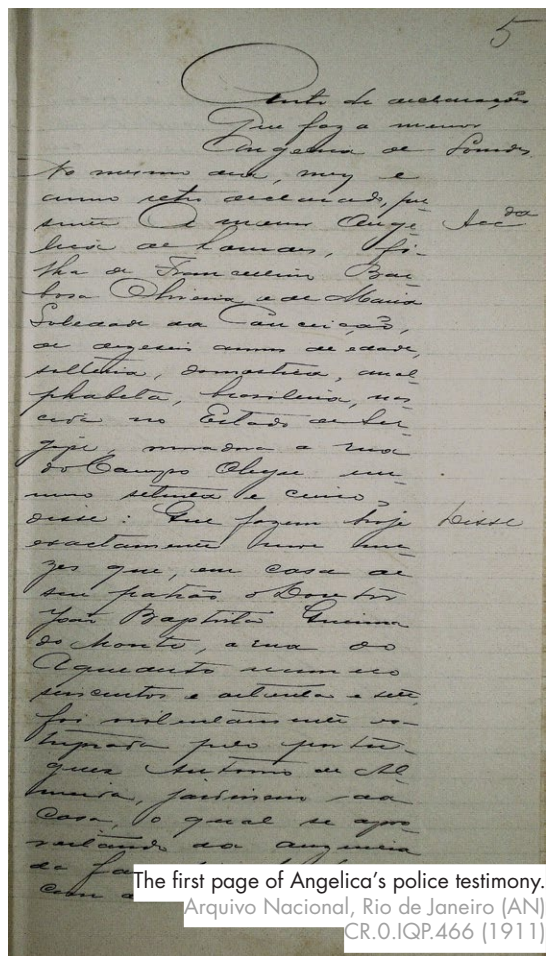 5
Auto de declarações
Que faz a menor
Angelica de Lourdes
No mesmo dia, mez e
anno retro declarado, pre-
sente a menor Ange- Dec da
lica de Lourdes, fi-
lha de Francellino Bar-
bosa Oliveira e de Maria
Soledade da Conceição,
de dezeseis annos de edade,
solteira, domestica, anal-
phabeta, brasileira, nas-
cida no Estado de Ser-
gipe, moradora a rua
do Campo Alegre nu-
mero setenta e cinco,
disse: Que fazem hoje Disse
exactamente nove me-
zes que, em casa de
seu patrão o Doutor
João Baptista
do Monte, a rua do
Aqueducto numero
e oitenta e sete,
foi violentamente es-
tuprada pelo portu-
guez Antonio de Al-
meida, jardineiro da
casa, o qual se apro-
veitando da auzencia
da
com a
The first page of Angelica’s police testimony.
Arquivo Nacional, Rio de Janeiro (AN)
CR.0.IQP.466 (1911)